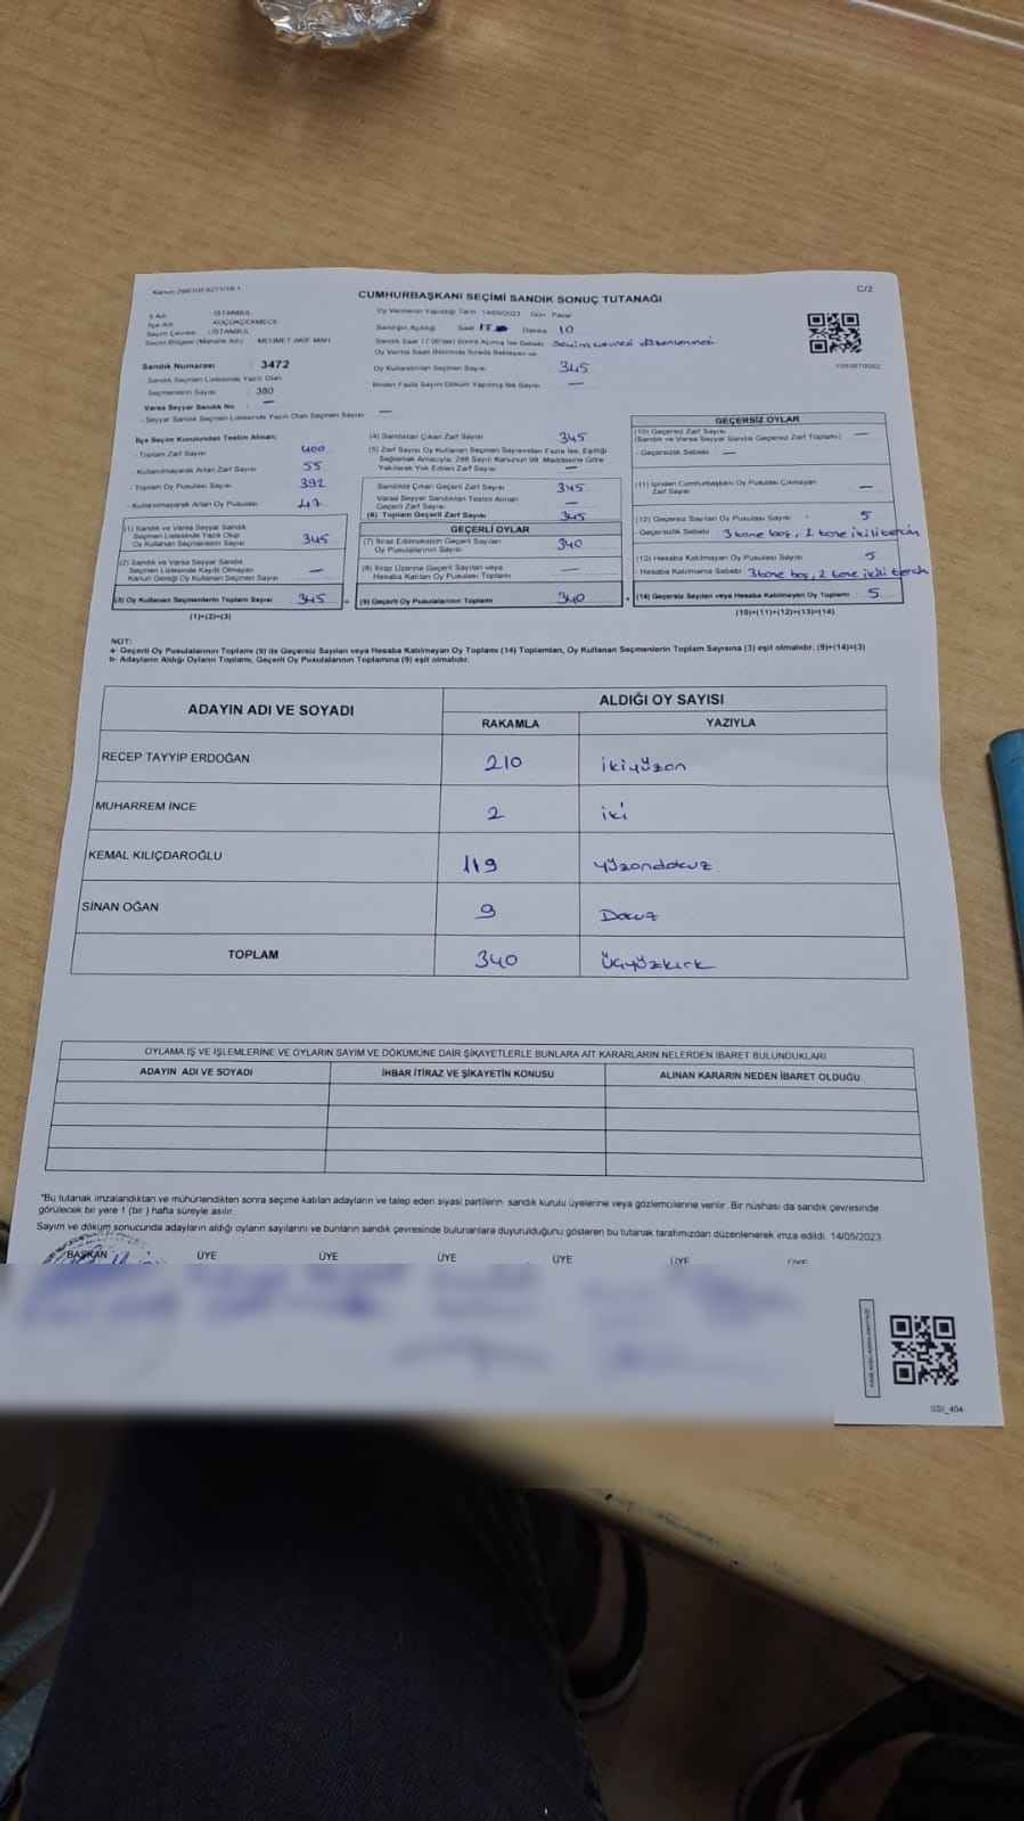 CUMHURBAŞKANI SEÇİMİ SANDIK SONUÇ TUTANAĞI
C/2
İl Adı : İSTANBUL
İlçe Adı : KÜÇÜKÇEKMECE
Seçim Çevresi : İSTANBUL
MEHMET AKİF MAH.
Oy Vermenin Yapıldığı Tarih 14/05/2023 Gün Pazar
Sandığın Açıldığı Saat 17 Dakika 10
Sandık Numarası : 3472
Sandık Seçmen Listesinde Yazılı Olan
Seçmenlerin Sayısı : 380
Varsa Seyyar Sandık No : —
- Seyyar Sandık Seçmen Listesinde Yazılı Olan Seçmen Sayısı —
Oy Kullandırılan Seçmen Sayısı 345
Birden Fazla Sayım Döküm Yapılmış İse Sayısı —
İlçe Seçim Kurulundan Teslim Alınan;
- Toplam Zarf Sayısı 400
- Kullanılmayarak Artan Zarf Sayısı 55
- Toplam Oy Pusulası Sayısı 392
- Kullanılmayarak Artan Oy Pusulası 47
(1) Sandık ve Varsa Seyyar Sandık
Seçmen Listesinde Yazılı Olup
Oy Kullanan Seçmenlerin Sayısı 345
(2) Sandık ve Varsa Seyyar Sandık
Seçmen Listesinde Kayıtlı Olmayan
Kanun Gereği Oy Kullanan Seçmen Sayısı —
(3) Oy Kullanan Seçmenlerin Toplam Sayısı 345
(1)+(2)=(3)
(4) Sandıktan Çıkan Zarf Sayısı 345
(5) Zarf Sayısı Oy Kullanan Seçmen Sayısından Fazla İse, Eşitliği
Sağlamak Amacıyla; 298 Sayılı Kanunun 98. Maddesine Göre
Yakılarak Yok Edilen Zarf Sayısı —
Sandıkta Çıkan Geçerli Zarf Sayısı 345
Varsa Seyyar Sandıktan Teslim Alınan
Geçerli Zarf Sayısı —
(6) Toplam Geçerli Zarf Sayısı 345
GEÇERLİ OYLAR
(7) İtiraz Edilmeksizin Geçerli Sayılan
Oy Pusulalarının Sayısı 340
(8) İtiraz Üzerine Geçerli Sayılan veya
Hesaba Katılan Oy Pusulası Toplamı —
(9) Geçerli Oy Pusulalarının Toplamı 340
GEÇERSİZ OYLAR
(10) Geçersiz Zarf Sayısı
(Sandık ve Varsa Seyyar Sandık Geçersiz Zarf Toplamı) —
- Geçersizlik Sebebi —
(11) İçinden Cumhurbaşkanı Oy Pusulası Çıkmayan
Zarf Sayısı —
(12) Geçersiz Sayılan Oy Pusulası Sayısı 5
- Geçersizlik Sebebi 3 tane boş, 2 tane ikili tercih
(13) Hesaba Katılmayan Oy Pusulası Sayısı 5
- Hesaba Katılmama Sebebi 3 tane boş, 2 tane ikili tercih
(14) Geçersiz Sayılan veya Hesaba Katılmayan Oy Toplamı 5
(10)+(11)+(12)+(13)=(14)
NOT:
a- Geçerli Oy Pusulalarının Toplamı (9) ile Geçersiz Sayılan veya Hesaba Katılmayan Oy Toplamı (14) Toplamları, Oy Kullanan Seçmenlerin Toplam Sayısına (3) eşit olmalıdır. (9)+(14)=(3)
b- Adayların Aldığı Oyların Toplamı, Geçerli Oy Pusulalarının Toplamına (9) eşit olmalıdır.
ADAYIN ADI VE SOYADI ALDIĞI OY SAYISI
RAKAMLA YAZIYLA
RECEP TAYYİP ERDOĞAN 210 ikiyüzon
MUHARREM İNCE 2 iki
KEMAL KILIÇDAROĞLU 119 yüzondokuz
SİNAN OĞAN 9 Dokuz
TOPLAM 340 Üçyüzkırk
OYLAMA İŞ VE İŞLEMLERİNE VE OYLARIN SAYIM VE DÖKÜMÜNE DAİR ŞİKAYETLERLE BUNLARA AİT KARARLARIN NELERDEN İBARET BULUNDUKLARI
ADAYIN ADI VE SOYADI İHBAR İTİRAZ VE ŞİKAYETİN KONUSU ALINAN KARARIN NEDEN İBARET OLDUĞU
"Bu tutanak imzalandıktan ve mühürlendikten sonra seçime katılan adayların ve talep eden siyasi partilerin sandık kurulu üyelerine veya gözlemcilerine verilir. Bir nüshası da sandık çevresinde
görülecek bir yere 1 (bir) hafta süreyle asılır.
Sayım ve döküm sonucunda adayların aldığı oyların sayılarını ve bunların sandık çevresinde bulunanlara duyurulduğunu gösteren bu tutanak tarafımızdan düzenlenerek imza edildi. 14/05/2023
BAŞKAN ÜYE ÜYE ÜYE ÜYE ÜYE ÜYE